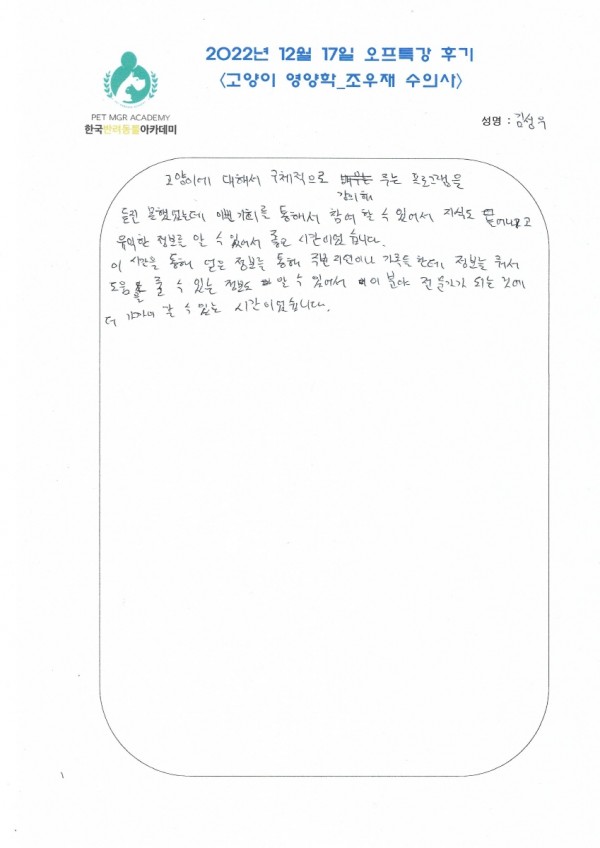 2022년 12월 17일 오프특강 후기
<고양이 영양학_조우재 수의사>
PET MGR ACADEMY
한국반려동물아카데미
성명 : 김성우
고양이에 대해서 구체적으로 주는 프로그램을
강의해
듣진 못했었는데 이번 기회를 통해서 참여 할 수 있어서 지식도 늘어나고
유익한 정보를 알 수 있어서 좋은 시간이었습니다.
이 시간을 통해 얻은 정보를 통해 주변 지인이나 가족들 한테 정보를 줘서
도움을 줄 수 있는 정보도 알 수 있어서 이 분야 전문가가 되는 것에
더 가까이 갈 수 있는 시간이었습니다.